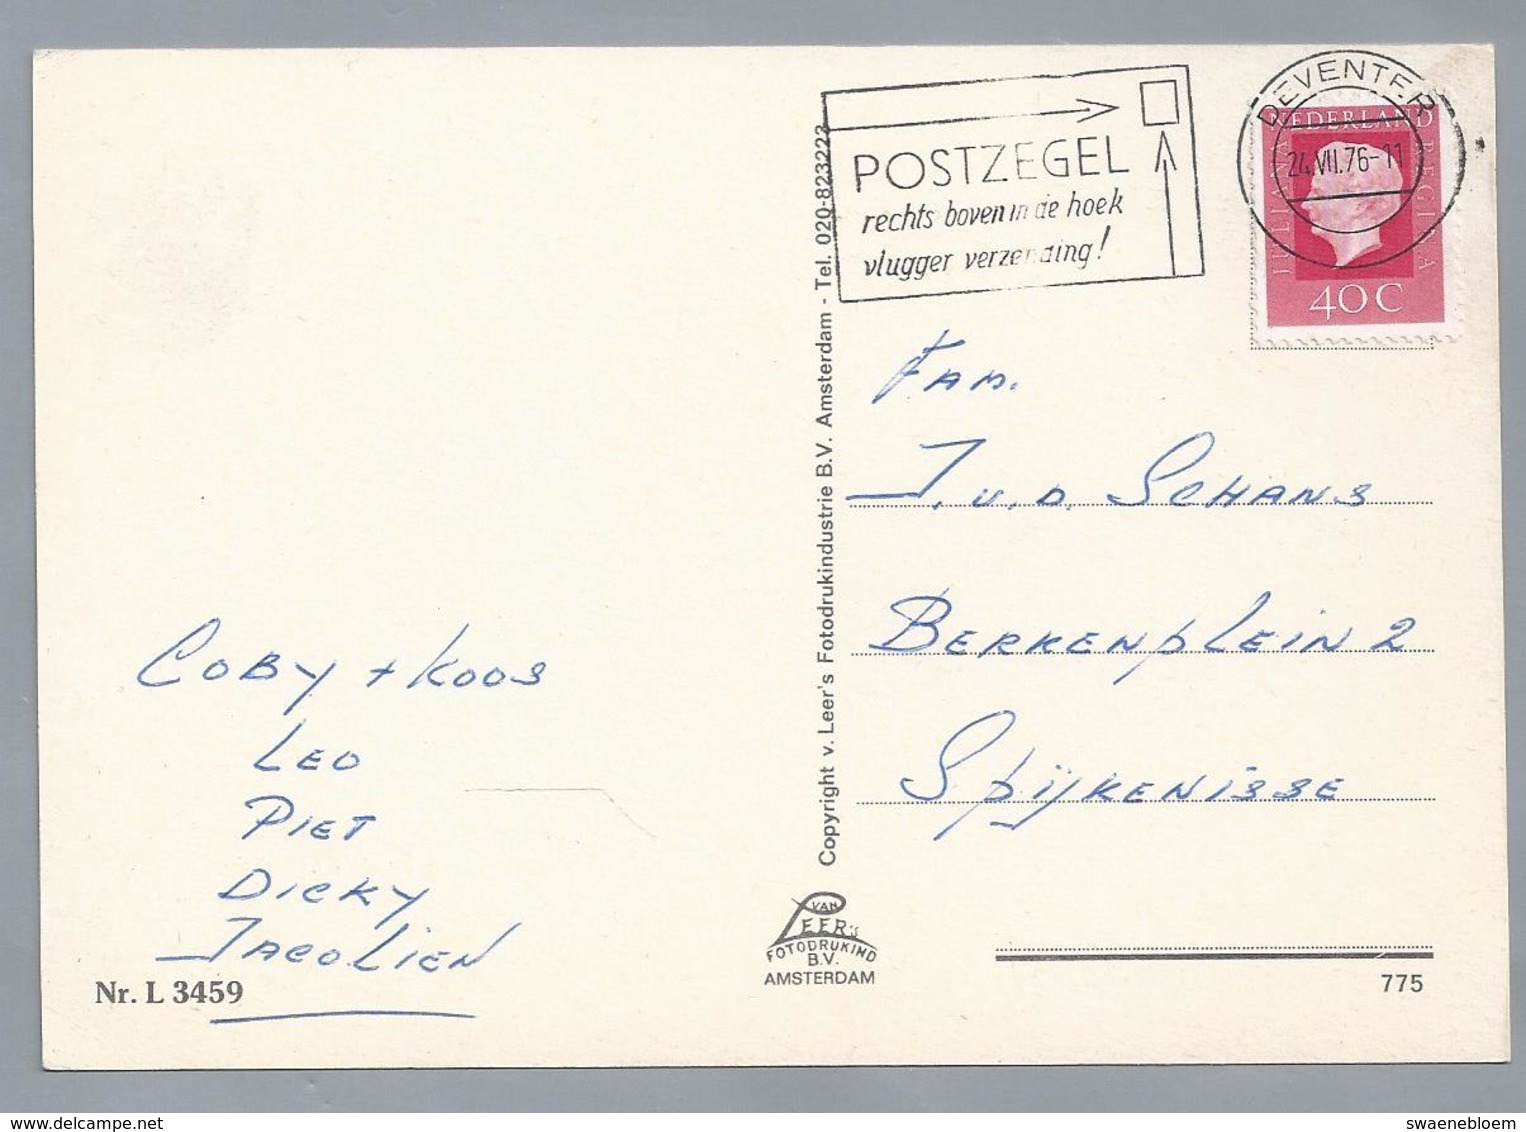 POSTZEGEL
rechts boven in de hoek
vlugger verzending!
DEVENTER
24.VII.76-11
NEDERLAND
JULIANA
REGINA
40C
Fam.
J. v. D. SCHANS
BERKENPLEIN 2
SPIJKENISSE
COBY + KOOS
LEO
PIET
DICKY
JACOLIEN
Nr. L 3459
Copyright v. Leer's Fotodrukindustrie B.V. Amsterdam - Tel. 020-823223
VAN
LEER's
FOTODRUKIND
B.V.
AMSTERDAM
775
delcampe.net
swaenebloem